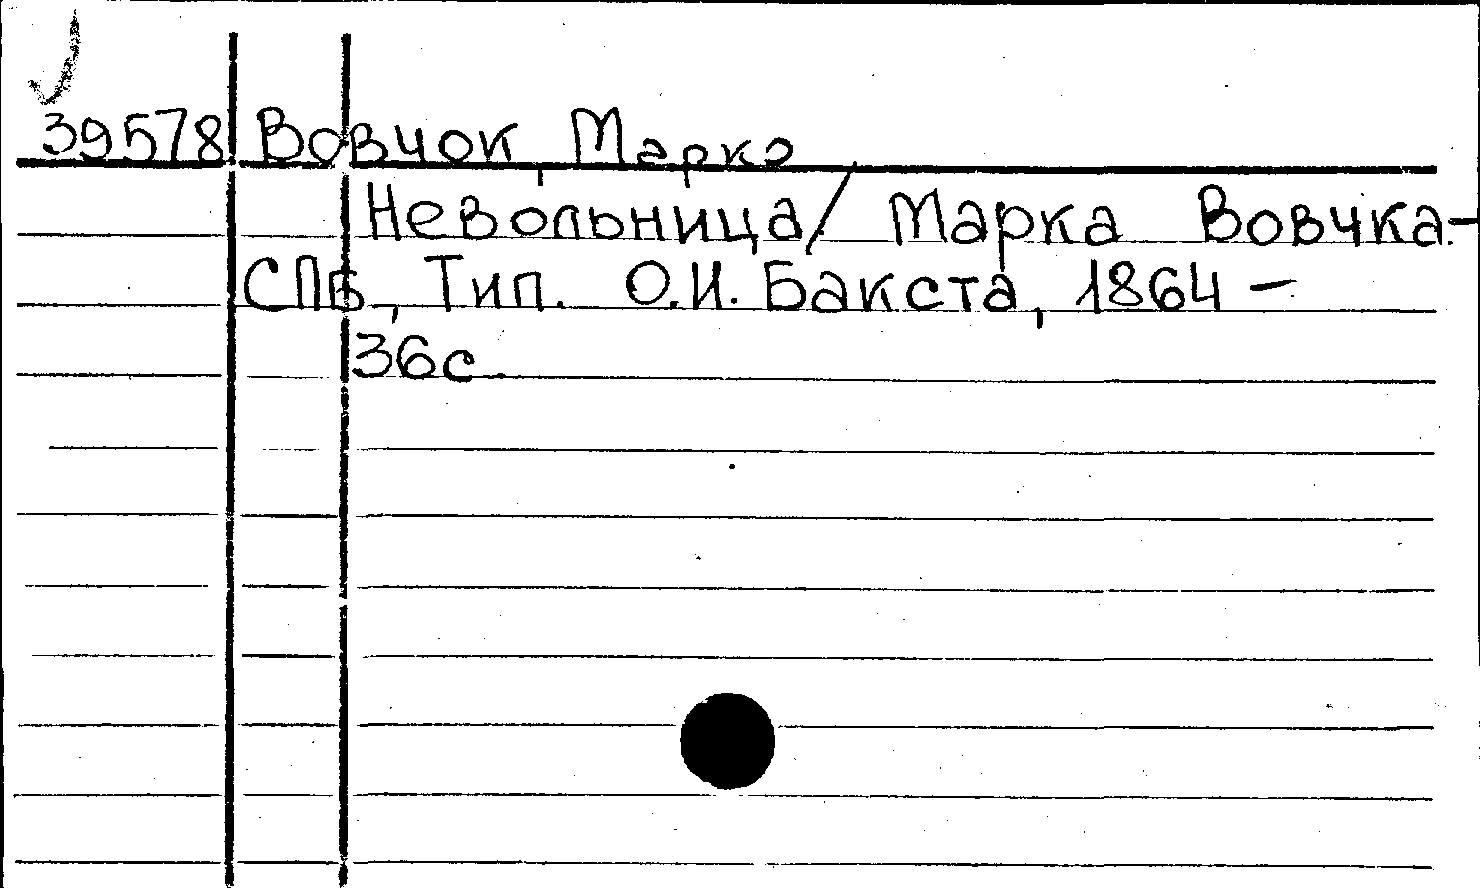 39578 Вовчок, Марко
Невольница / Марка Вовчка.-
СПб, Тип. О.И. Бакста, 1864 -
36с.